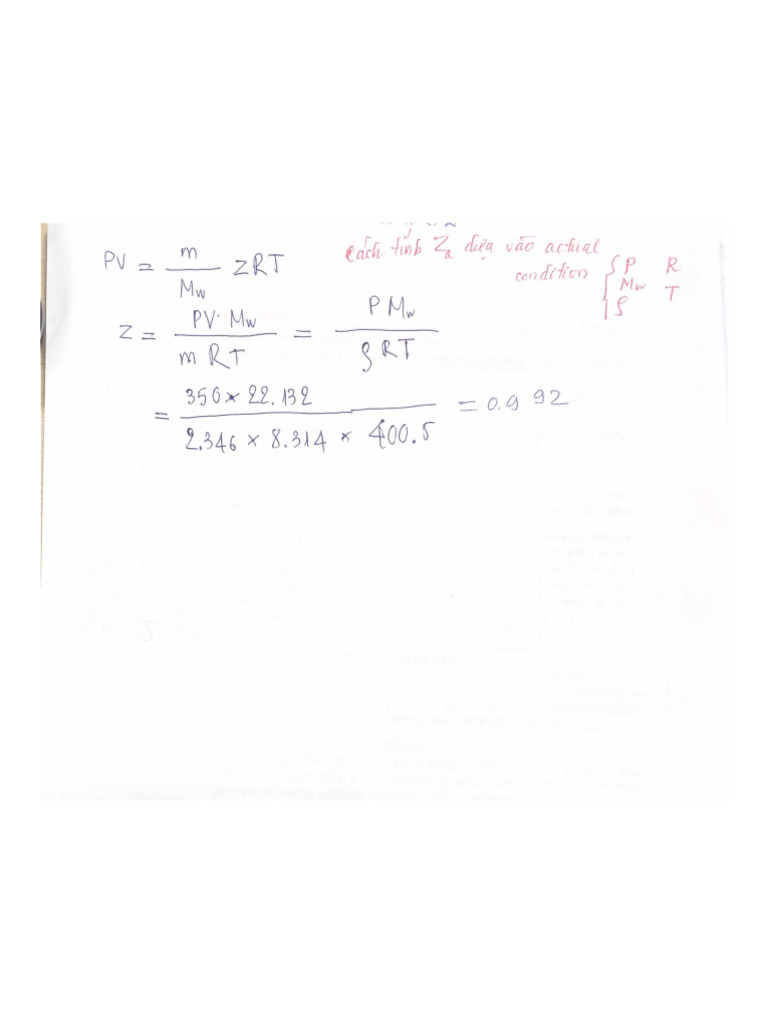 Cách tính Za dựa vào actual
condition { P R
Mw T
ρ
PV = m / Mw ZRT
Z = PV· Mw / m RT = P Mw / ρ RT
= 350 × 22.132 / 2.346 × 8.314 × 400.5 = 0.992